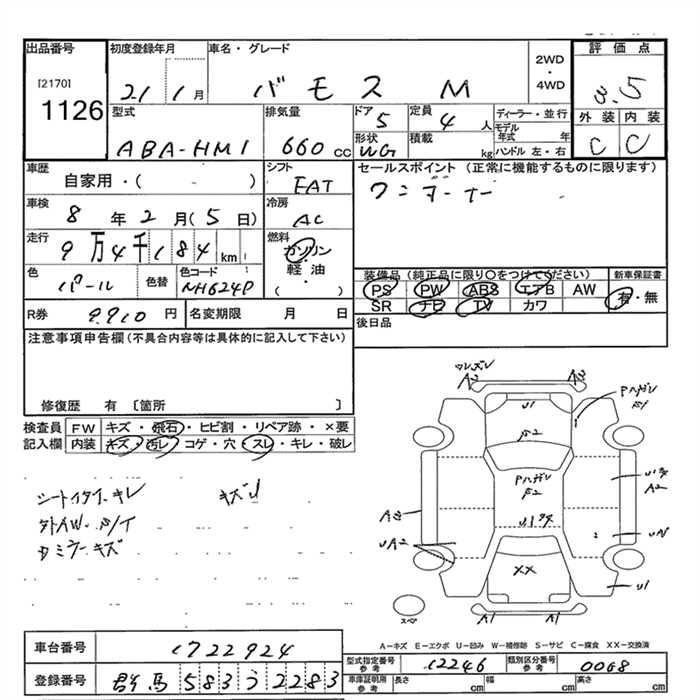 出品番号
[2170]
1126
初度登録年月
21 1月
車名・グレード
バモス M
2WD
・
4WD
評価点
3.5
外装 内装
C C
型式
ABA-HM1
排気量
660 cc
ドア
5
定員
4 人
形状
WG
積載
kg
ディーラー・並行
モデル年式 年
ハンドル 左・右
車歴
自家用・( )
シフト
FAT
セールスポイント (正常に機能するものに限ります)
ワンオーナー
車検
8年 2月 (5日)
冷房
AC
走行
9万4千184 km
燃料
ガソリン
軽油・
( )
色
パール
色替
色コード
NH624P
装備品 (純正品に限り○をつけてください)
新車保証書
PS PW ABS エアB AW
有・無
SR ナビ TV カワ
R券
9910 円
名変期限 月 日
後日品
注意事項申告欄 (不具合内容等は具体的に記入して下さい)
修復歴 有 〔箇所 〕
検査員
記入欄
FW キズ・飛石・ヒビ割・リペア跡・×要
内装 キズ・汚レ・コゲ・穴・スレ・キレ・破レ
シートイタミ・キレ
キズU
A2
A3
U1
XX
A2
U1
A1
A1
スペア
A-キズ E-エクボ U-凹み W-補修跡 S-サビ C-腐食 XX-交換済
車台番号
1722924
登録番号
群馬 583 う 2283
型式指定番号
参考
12246
類別区分番号
参考
0068
車庫証明用
参考
長さ cm
幅 cm
高さ cm